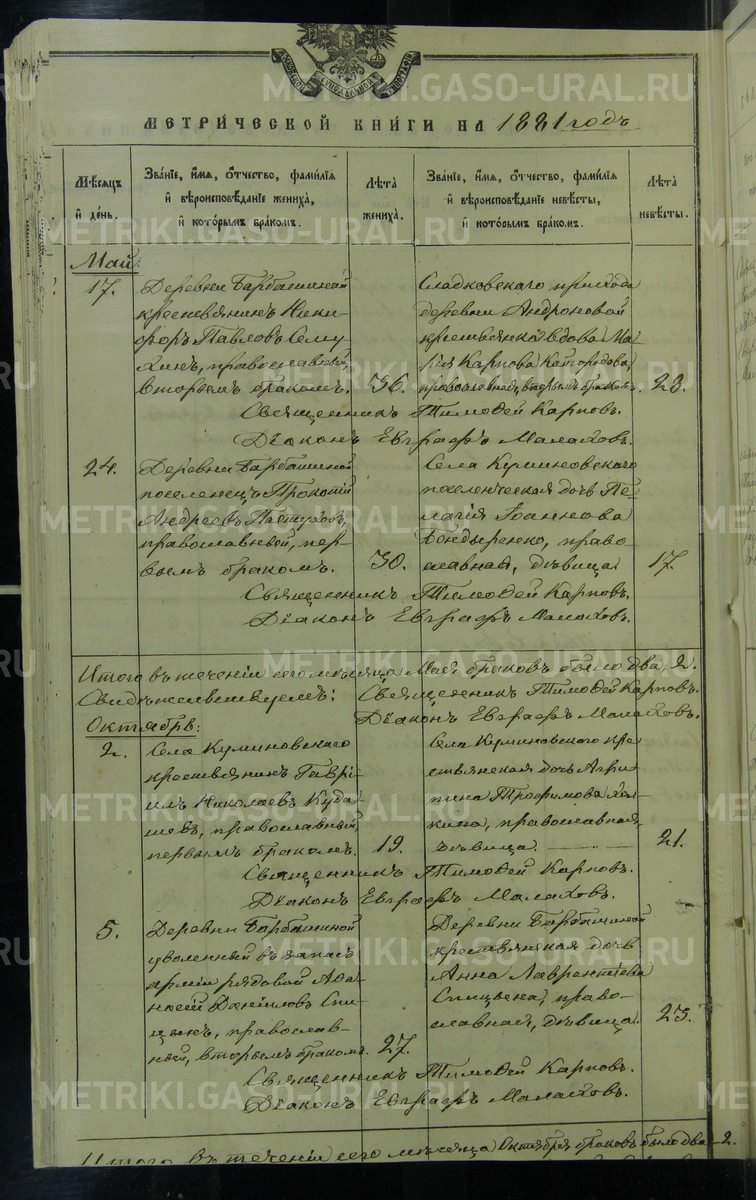 МЕТРИЧЕСКОЙ КНИГИ НА 1881 годъ
Мѣсяцъ и день.
Званіе, имя, отчество, фамилія и вѣроисповѣданіе жениха, и которымъ бракомъ.
Лѣта жениха.
Званіе, имя, отчество, фамилія и вѣроисповѣданіе невѣсты, и которымъ бракомъ.
Лѣта невѣсты.
Май:
17.
Деревни Барбашиной
крестьянинъ Ники-
форъ Павловъ Сему-
хинъ, православный,
вторымъ бракомъ.
36.
Сладковскаго прихода
деревни Андроновой
крестьянка вдова Ма-
рія Карпова Кайгородова,
православная, вторымъ бракомъ.
23.
Священникъ Тимоѳей Карповъ.
Діаконъ Евграфъ Малаховъ.
24.
Деревни Барбашиной
поселенецъ Прокопій
Андреевъ Пастуховъ,
православный, пер-
вымъ бракомъ.
30.
Села Куминовскаго
поселенческая дочь Пе-
лагія Іоаннова
Бондыренко, право-
славная, дѣвица.
17.
Священникъ Тимоѳей Карповъ.
Діаконъ Евграфъ Малаховъ.
Итого въ теченіи сего мѣсяца Мая браковъ было два 2.
Свидѣтельствуемъ: Священникъ Тимоѳей Карповъ.
Діаконъ Евграфъ Малаховъ.
Октябрь:
2.
Села Куминовскаго
крестьянинъ Гаврі-
илъ Николаевъ Куда-
шевъ, православный,
первымъ бракомъ.
19.
Села Куминовскаго кре-
стьянская дочь Агри-
пина Трофимова
православная,
дѣвица.
21.
Священникъ Тимоѳей Карповъ.
Діаконъ Евграфъ Малаховъ.
5.
Деревни Барбашиной
уволенный въ запасъ
арміи рядовой Аѳа-
насій Даніиловъ Спи-
цынъ, православ-
ный, вторымъ бракомъ.
27.
Деревни Барбашиной
крестьянская дочь
Анна Лаврентіева
Спицына, право-
славная, дѣвица.
23.
Священникъ Тимоѳей Карповъ.
Діаконъ Евграфъ Малаховъ.
Итого въ теченіи сего мѣсяца Октября браковъ было два 2.
METRIKI.GASO-URAL.RU